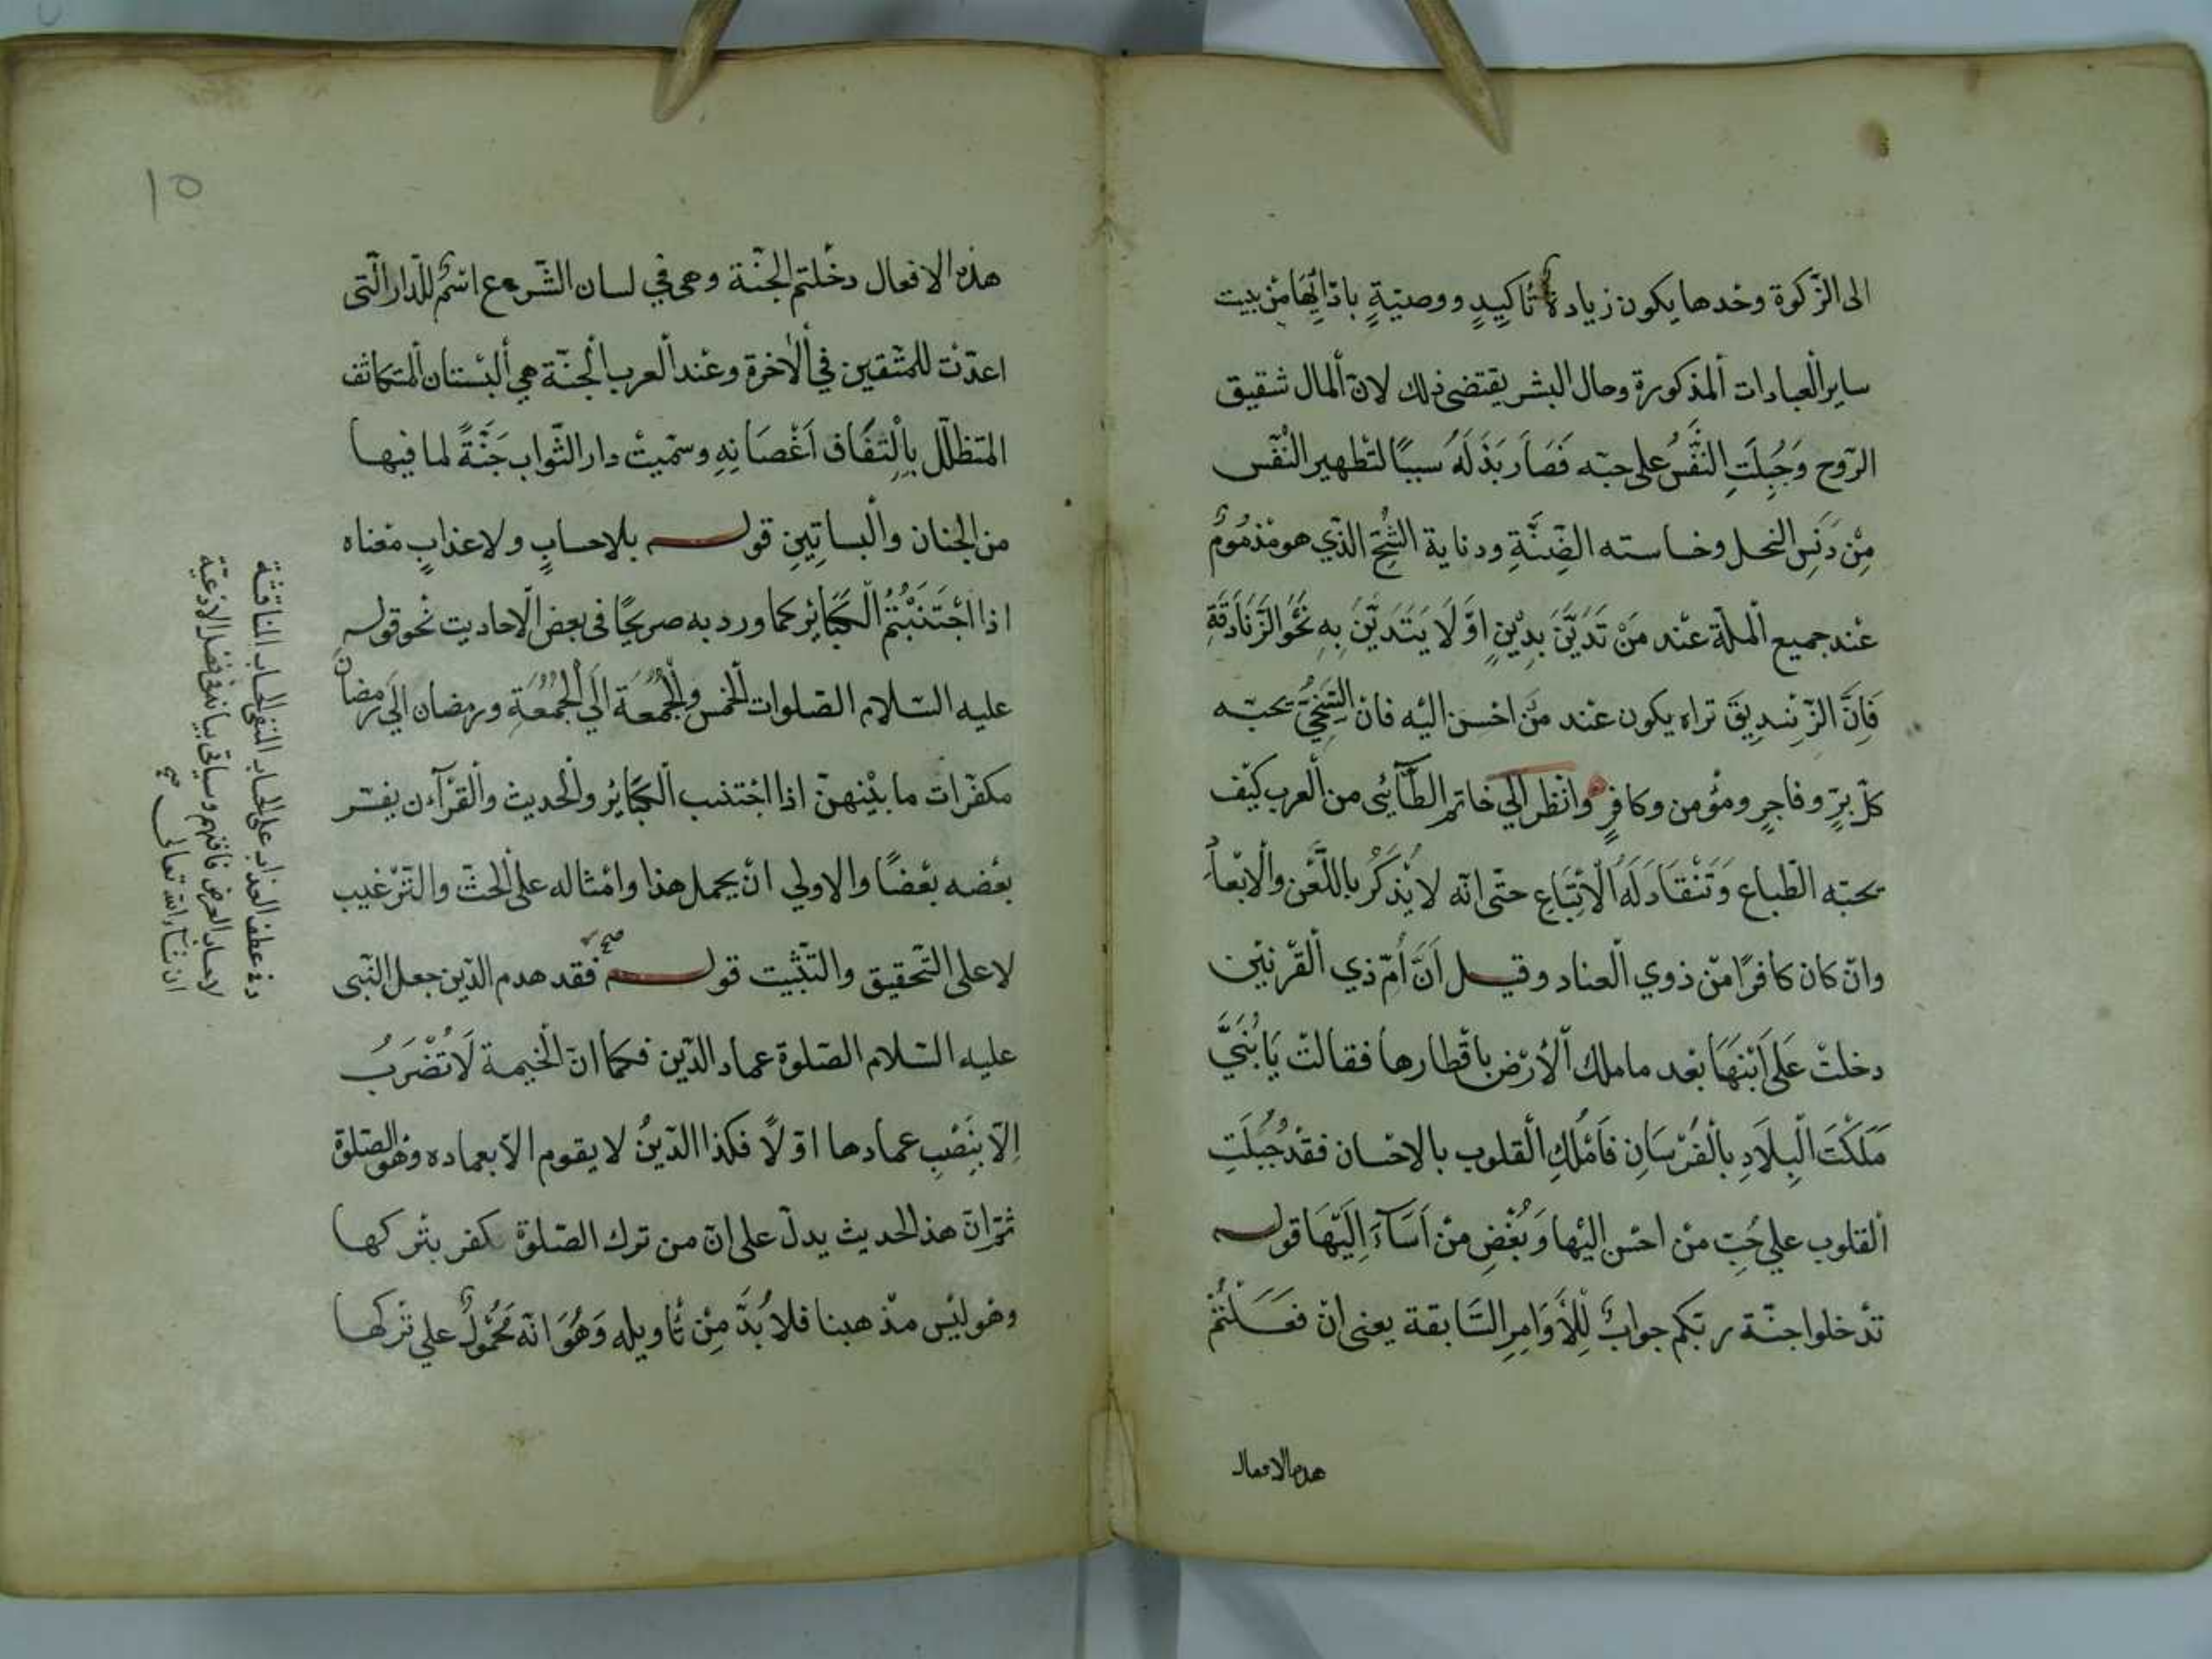 الى الزكوة وحدها يكون زيادة تاكيدٍ ووصيّةٍ بادائها من بيت
ساير العبادات المذكورة وحال البشر يقتضى ذلك لانّ المال شقيق
الرّوح وَجُبِلَتِ النَّفْسُ على حبّه فَصَارَ بَذْلَهُ سببًا لتطهير النّفس
مِنْ دَنَسِ البخل وخساسته الضِنَّةِ ودناية الشُّحّ الذّي هو مذمُومٌ
عند جميع الملّة عند مَنْ تَدَيَّنَ بِدِيْنٍ اوْ لَا يَتَدَيَّنُ بِهِ نَحْوُ الزَّنَادَقَةِ
فَاِنَّ الزِّنْدِيقَ تراه يكون عند من احسن اليْه فان السَّخِىَّ يحبّه
كلّ برٍّ وفاجرٍ ومؤمن وكافرٍ وانظر الي خاتم الطّائى من العرب كيْف
يحبّه الطّباع وَتَنْقَادَ لَهُ الْاَتْبَاعِ حتّى انّه لا يُذكَرُ باللّعْن والْابْعَادِ
وانْ كان كافرًا منْ ذوي الْعناد وقيل اَنَّ اُمّ ذي الْقرْنيْن
دخلتْ عَلَى ابْنِهَا بعْد ما ملك الْاَرْض باقْطارها فقالتْ يَا بُنَىَّ
مَلَكْتَ الْبِلَادِ بِالْفُرْسَانِ فَامْلُكِ الْقلوب بالاحْسان فقدْ جُبِلَتِ
القلوب علي حُبّ منْ احسن اليْها وَبُغْضِ مَنْ اَسَآءَ اِلَيْهَا قوله
تدْخلوا جنّة ربّكم جوابٌ لِلْاَوَامِرِ السَّابقة يعنى انْ فَعَلْتُمْ
هذه الافعال
١٥
هذه الافعال دخلتم الجنّة وهى في لسان الشّرع اسْمٌ للدّار الّتى
اعدّت للمتّقين في الْاخرة وعنْد العرب الْجنّة هي الْبسْتان المتكاثف
المتظلّل بِالْتِفَافِ اَغْصَانِهِ وسمّيتْ دار الثّواب جَنَّةً لما فيها
من الجنان والْبساتِينِ قوله بلا حسابٍ ولا عذابٍ معْناه
اذا اجْتَنَبْتُمُ الْكَبَائِرَ كما ورد به صريحًا فى بعض الْاحاديث نحْو قوله
عليه السّلام الصّلوات الخمس والْجُمُعَة اَلَي الْجُمُعَةِ ورمضان الَي رمضان
مكفّرات ما بيْنهنّ اذا اجْتنب الْكبَائر والْحديث والْقرْآن يفسّر
بعْضه بعْضًا والاولي انْ يحمل هذا وامْثاله على الْحثّ والتّرْغيب
لا على التّحقيق والتّثبيت قوله فقد هدم الدّين جعل النّبى
عليه السّلام الصّلوة عماد الدّين فكما انّ الْخيمة لَا تُضْرَبُ
اِلّا بِنَصْبِ عمادها اوّلًا فكذا الدّينُ لا يقوم الّا بعماده وهو الصّلوة
ثمّ انّ هذ الحديث يدلّ على انّ من ترك الصّلوة يكفر بترْكها
وهو ليْس مذْهبنا فلا بُدَّ مِنْ تأويله وَهُوَ انّه مَحْمُولٌ علي ترْكها
وفى عطف العذاب على الحساب المنفى الحساب المناقشة
لا حساب العرض فافهم وسياتى بيانه فى فضل الادعيّة
ان شاء الله تعالى صح